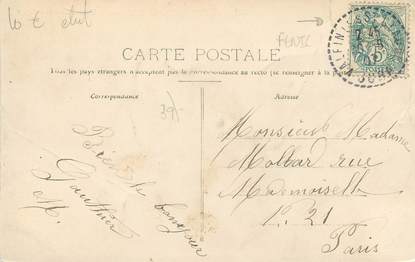 CARTE POSTALE
Tous les pays étrangers n'acceptent pas la correspondance au recto (se renseigner à la
Correspondance
Adresse
39
Bien le bonjour
Gauthier
M.
Monsieur Madame
Molbar rue
Mademoiselle
N. 21
Paris